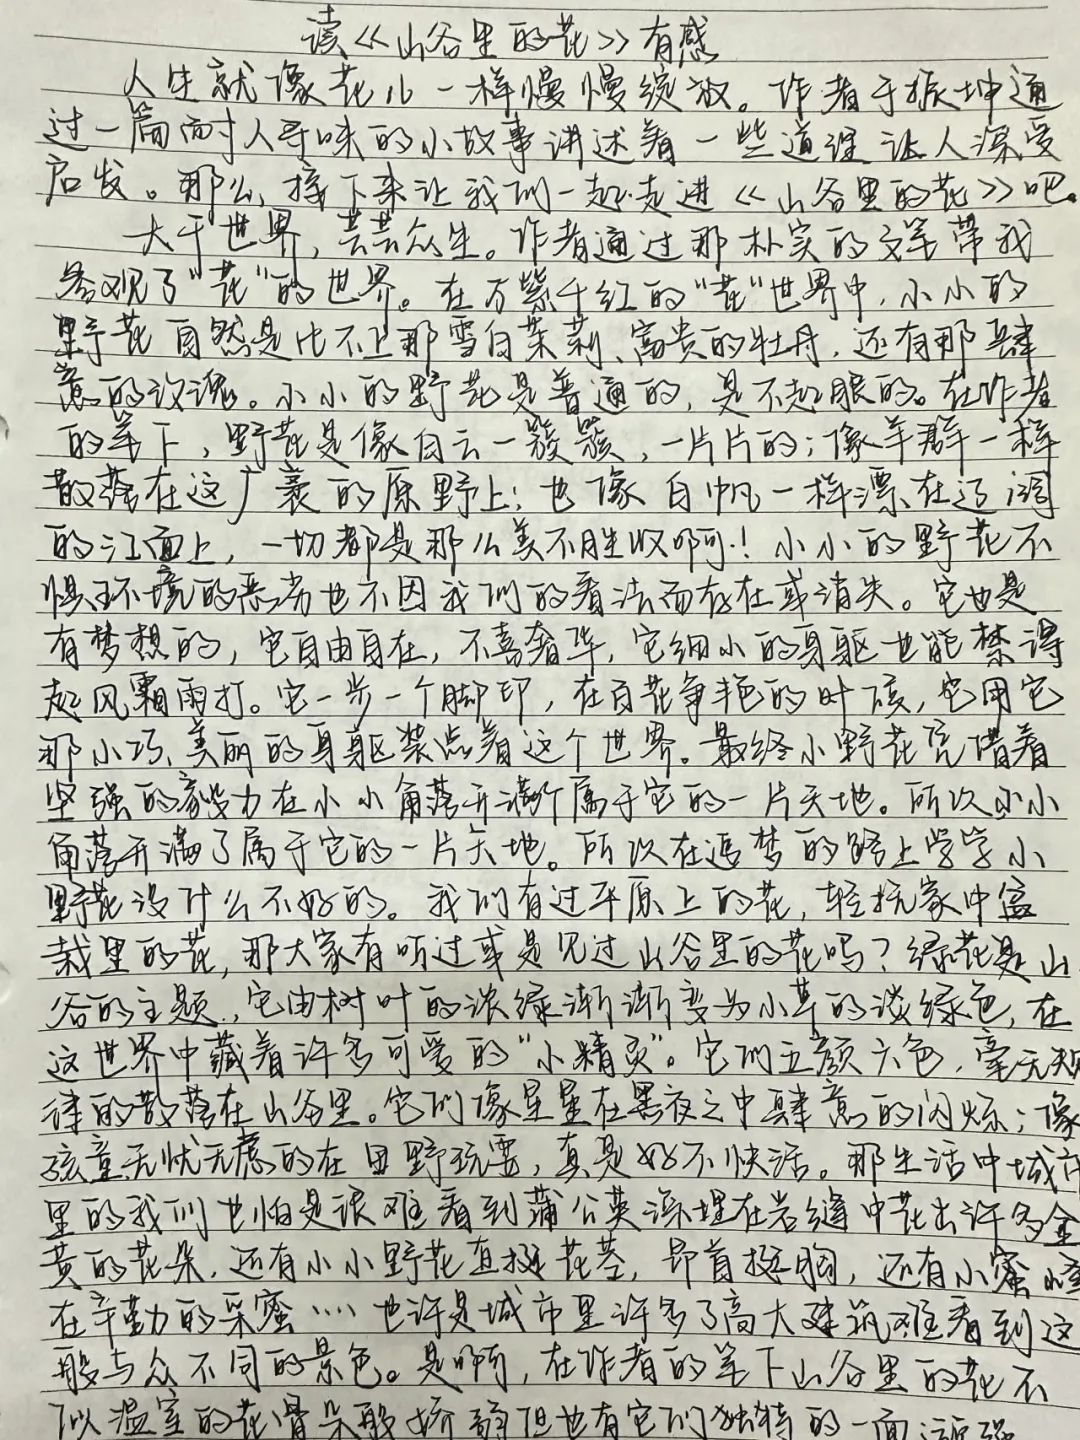 读《山谷里的花》有感
人生就像花儿一样慢慢绽放。作者于振坤通
过一篇耐人寻味的小故事讲述着一些道理让人深受
启发。那么,接下来让我们一起走进《山谷里的花》吧。
大千世界,芸芸众生。作者通过那朴实的文笔带我
参观了“花”的世界。在万紫千红的“花”世界中,小小的
野花自然是比不上那雪白茉莉、富贵的牡丹,还有那肆
意的玫瑰。小小的野花是普通的,是不起眼的。在作者
的笔下,野花是像白云一簇簇,一片片的;像羊群一样
散落在这广袤的原野上;也像白帆一样漂在辽阔
的江面上,一切都是那么美不胜收啊!小小的野花不
惧环境的恶劣也不因我们的看法而存在或消失。它也是
有梦想的,它自由自在,不喜奢华,它细小的身躯也能禁得
起风霜雨打。它一步一个脚印,在百花争艳的时候,它用它
那小巧、美丽的身躯装点着这个世界。最终小野花凭借着
坚强的毅力在小小角落开满属于它的一片天地。所以小小
角落开满了属于它的一片天地。所以在追梦的路上学学小
野花没什么不好的。我们有过平原上的花,轻抚家中盆
栽里的花,那大家有听过或是见过山谷里的花吗?绿花是山
谷的主题,它由树叶的浓绿渐渐变为小草的淡绿色,在
这世界中藏着许多可爱的“小精灵”。它们五颜六色,毫无规
律的散落在山谷里。它们像星星在黑夜之中肆意的闪烁;像
孩童无忧无虑的在田野玩耍,真是好不快活。那生活中城市
里的我们也怕是很难看到蒲公英深埋在岩缝中花出许多金
黄的花朵,还有小小野花直挺花茎,昂首挺胸,还有小蜜蜂
在辛勤的采蜜……也许是城市里许多了高大建筑难看到这
般与众不同的景色。是啊,在作者的笔下山谷里的花不
似温室的花骨朵般娇弱但也有它们独特的一面